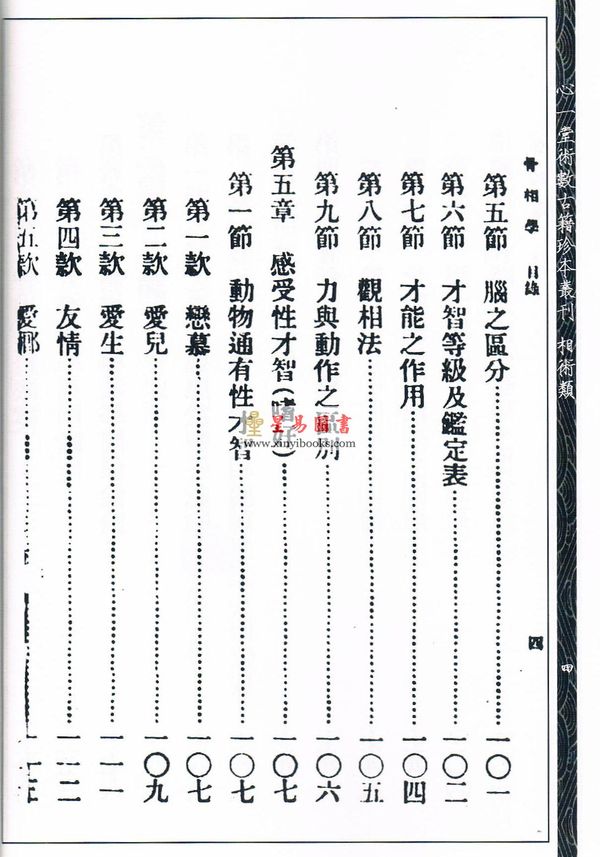 心一堂術數古籍珍本叢刊 相術類
四
骨相學 目錄
四
第五節 腦之區分 一〇一
第六節 才智等級及鑑定表 一〇二
第七節 才能之作用 一〇四
第八節 觀相法 一〇五
第九節 力與動作之區別 一〇六
第五章 感受性才智(嗜好) 一〇七
第一節 動物通有性才智 一〇七
第一款 戀慕 一〇七
第二款 愛兒 一〇九
第三款 愛生 一一一
第四款 友情 一一二
第五款 愛鄉
星易圖書
www.xinyibooks.com